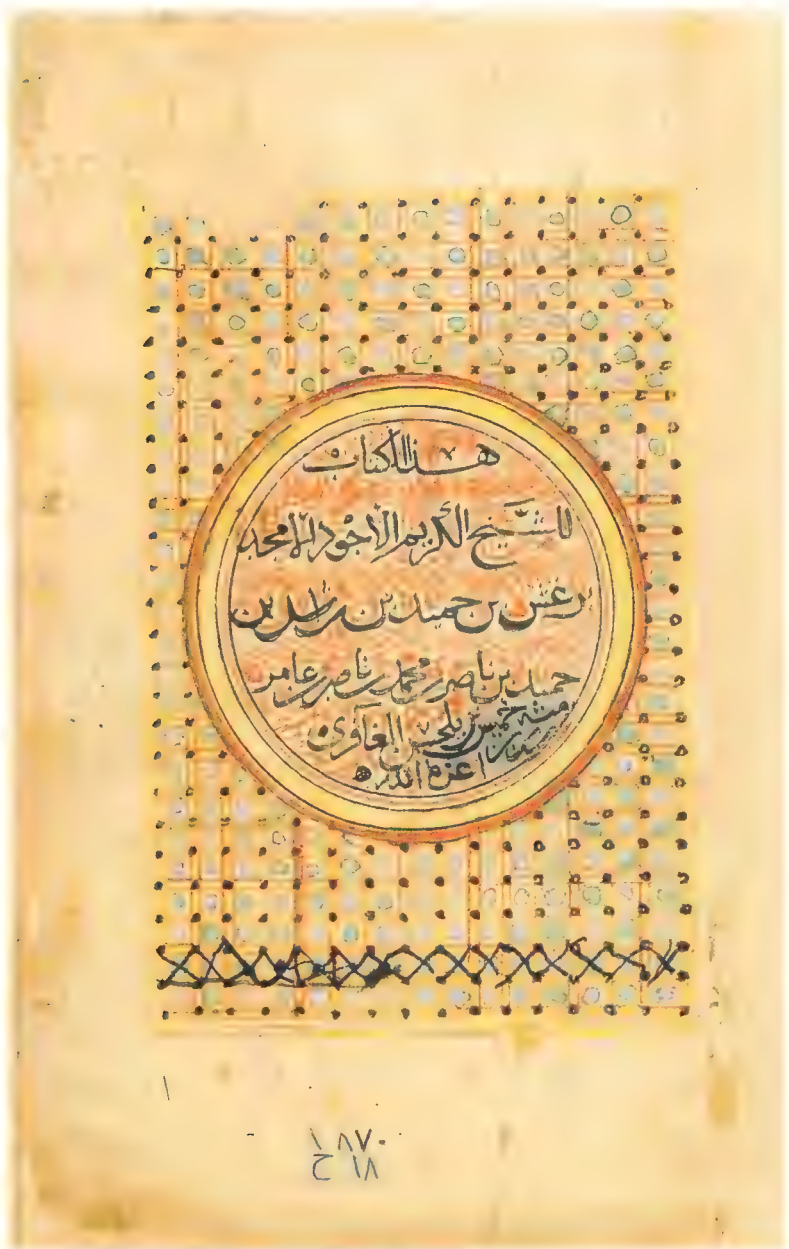 هذا الكتاب
للشيخ الكريم الأجود الأمجد
بن حميد بن راشد بن
حميد بن ناصر بن محمد بن ناصر بن عامر
خميس بن بلحسن الغآوي
اعزه الله
١
١٨٧٠
١٨ ح